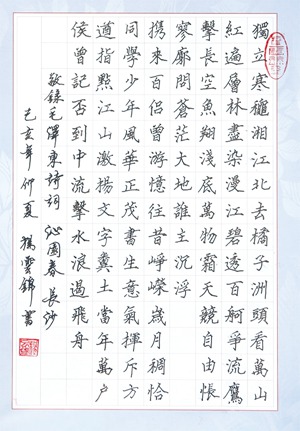 獨立寒穐湘江北去橘子洲頭看萬山
紅遍層林盡染漫江碧透百舸爭流鷹
擊長空魚翔淺底萬物霜天競自由悵
寥廓問蒼茫大地誰主沉浮
携來百侶曾游憶往昔崢嶸歲月稠恰
同學少年風華正茂書生意氣揮斥方
遒指點江山激揚文字糞土當年萬户
侯曾記否到中流擊水浪遏飛舟
敬錄毛澤東詩詞 沁園春 長沙
己亥年仲夏 楊雲錦書